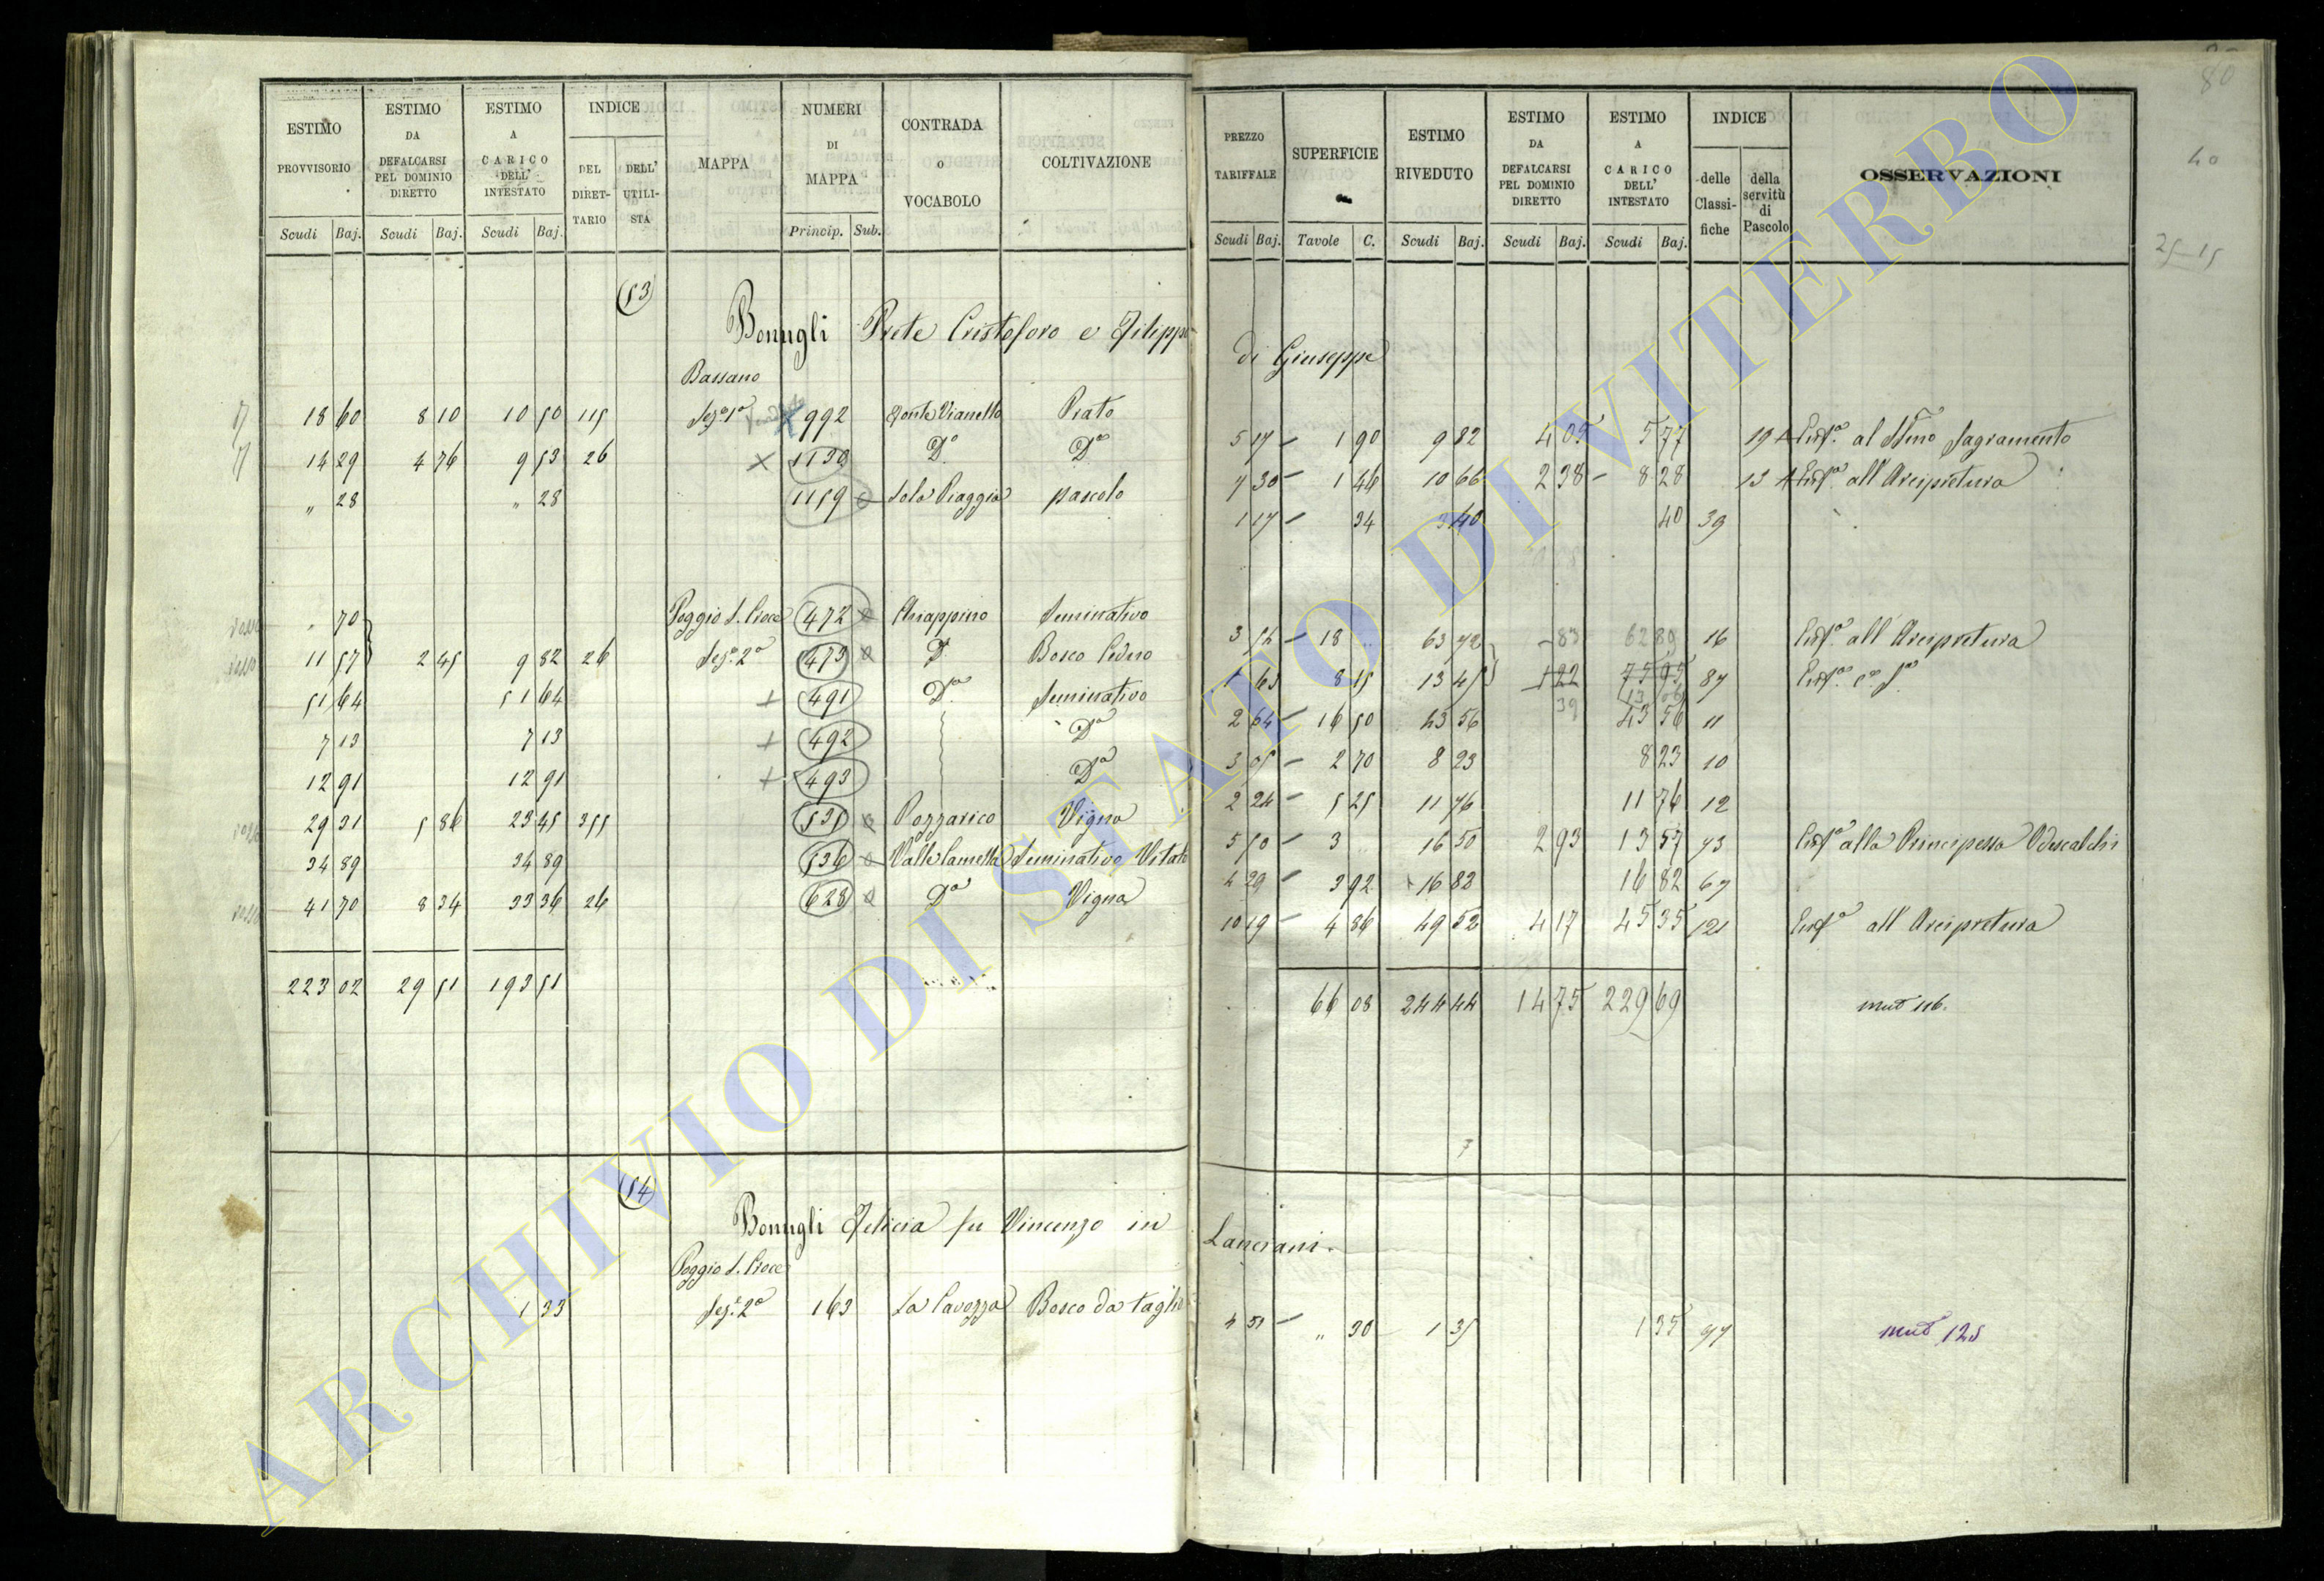 80
40
25-15
ESTIMO PROVVISORIO
ESTIMO DA DEFALCARSI PEL DOMINIO DIRETTO
ESTIMO A CARICO DELL' INTESTATO
INDICE
DEL DIRET-TARIO
DELL' UTILI-STA
MAPPA
NUMERI DI MAPPA
CONTRADA o VOCABOLO
COLTIVAZIONE
PREZZO TARIFFALE
SUPERFICIE
ESTIMO RIVEDUTO
ESTIMO DA DEFALCARSI PEL DOMINIO DIRETTO
ESTIMO A CARICO DELL' INTESTATO
INDICE
delle Classi-fiche
della servitù di Pascolo
OSSERVAZIONI
Scudi Baj. Scudi Baj. Scudi Baj. Princip. Sub.
Scudi Baj. Tavole C. Scudi Baj. Scudi Baj. Scudi Baj.
53
Bonugli Prete Cristoforo e Filippo di Giuseppe
Bassano
18 60 8 10 10 50 115 Sez.e 1a 992 Fonte Vianello Prato 5 17 1 90 9 82 4 05 5 77 19 Enf.a al SSmo Sagramento
14 29 4 76 9 53 26 1130 Do Do 7 30 1 46 10 66 2 38 8 28 13 Enf.a all' Arcipretura
" 28 " 28 1159 pascolo 1 17 34 40 40 39
70 Poggio S. Croce 472 Chiappino Seminativo 3 54 18 63 72 83 62 89 16 Enf.a all' Arcipretura
11 57 2 45 9 82 26 Sez.e 2a 473 Do Bosco Ceduo 1 65 8 15 13 45 87
51 64 51 64 491 Do Seminativo 2 64 16 50 43 56 39 43 56 11
7 13 7 13 492 Do 3 05 2 70 8 23 8 23 10
12 91 12 91 493 Do 2 24 5 25 11 76 11 76 12
29 31 5 86 23 45 355 535 Pozzarico Vigna 5 50 3 16 50 2 93 13 57 73 Enf.a alla Principessa Odescalchi
34 89 34 89 536 Valle Camella Seminativo Vitato 4 29 3 92 16 82 16 82 67
41 70 8 34 33 36 26 628 Do Vigna 10 19 4 86 49 52 4 17 45 35 121 Enf.a all' Arcipretura
223 02 29 51 193 51 66 08 244 44 14 75 229 69 mut 116.
54
Bonugli Felicia fu Vincenzo in Lanciani.
Poggio S. Croce
1 33 Sez.e 2a 163 La Cavozza Bosco da taglio 4 51 " 30 1 35 1 35 97 mut 125
ARCHIVIO DI STATO DI VITERBO